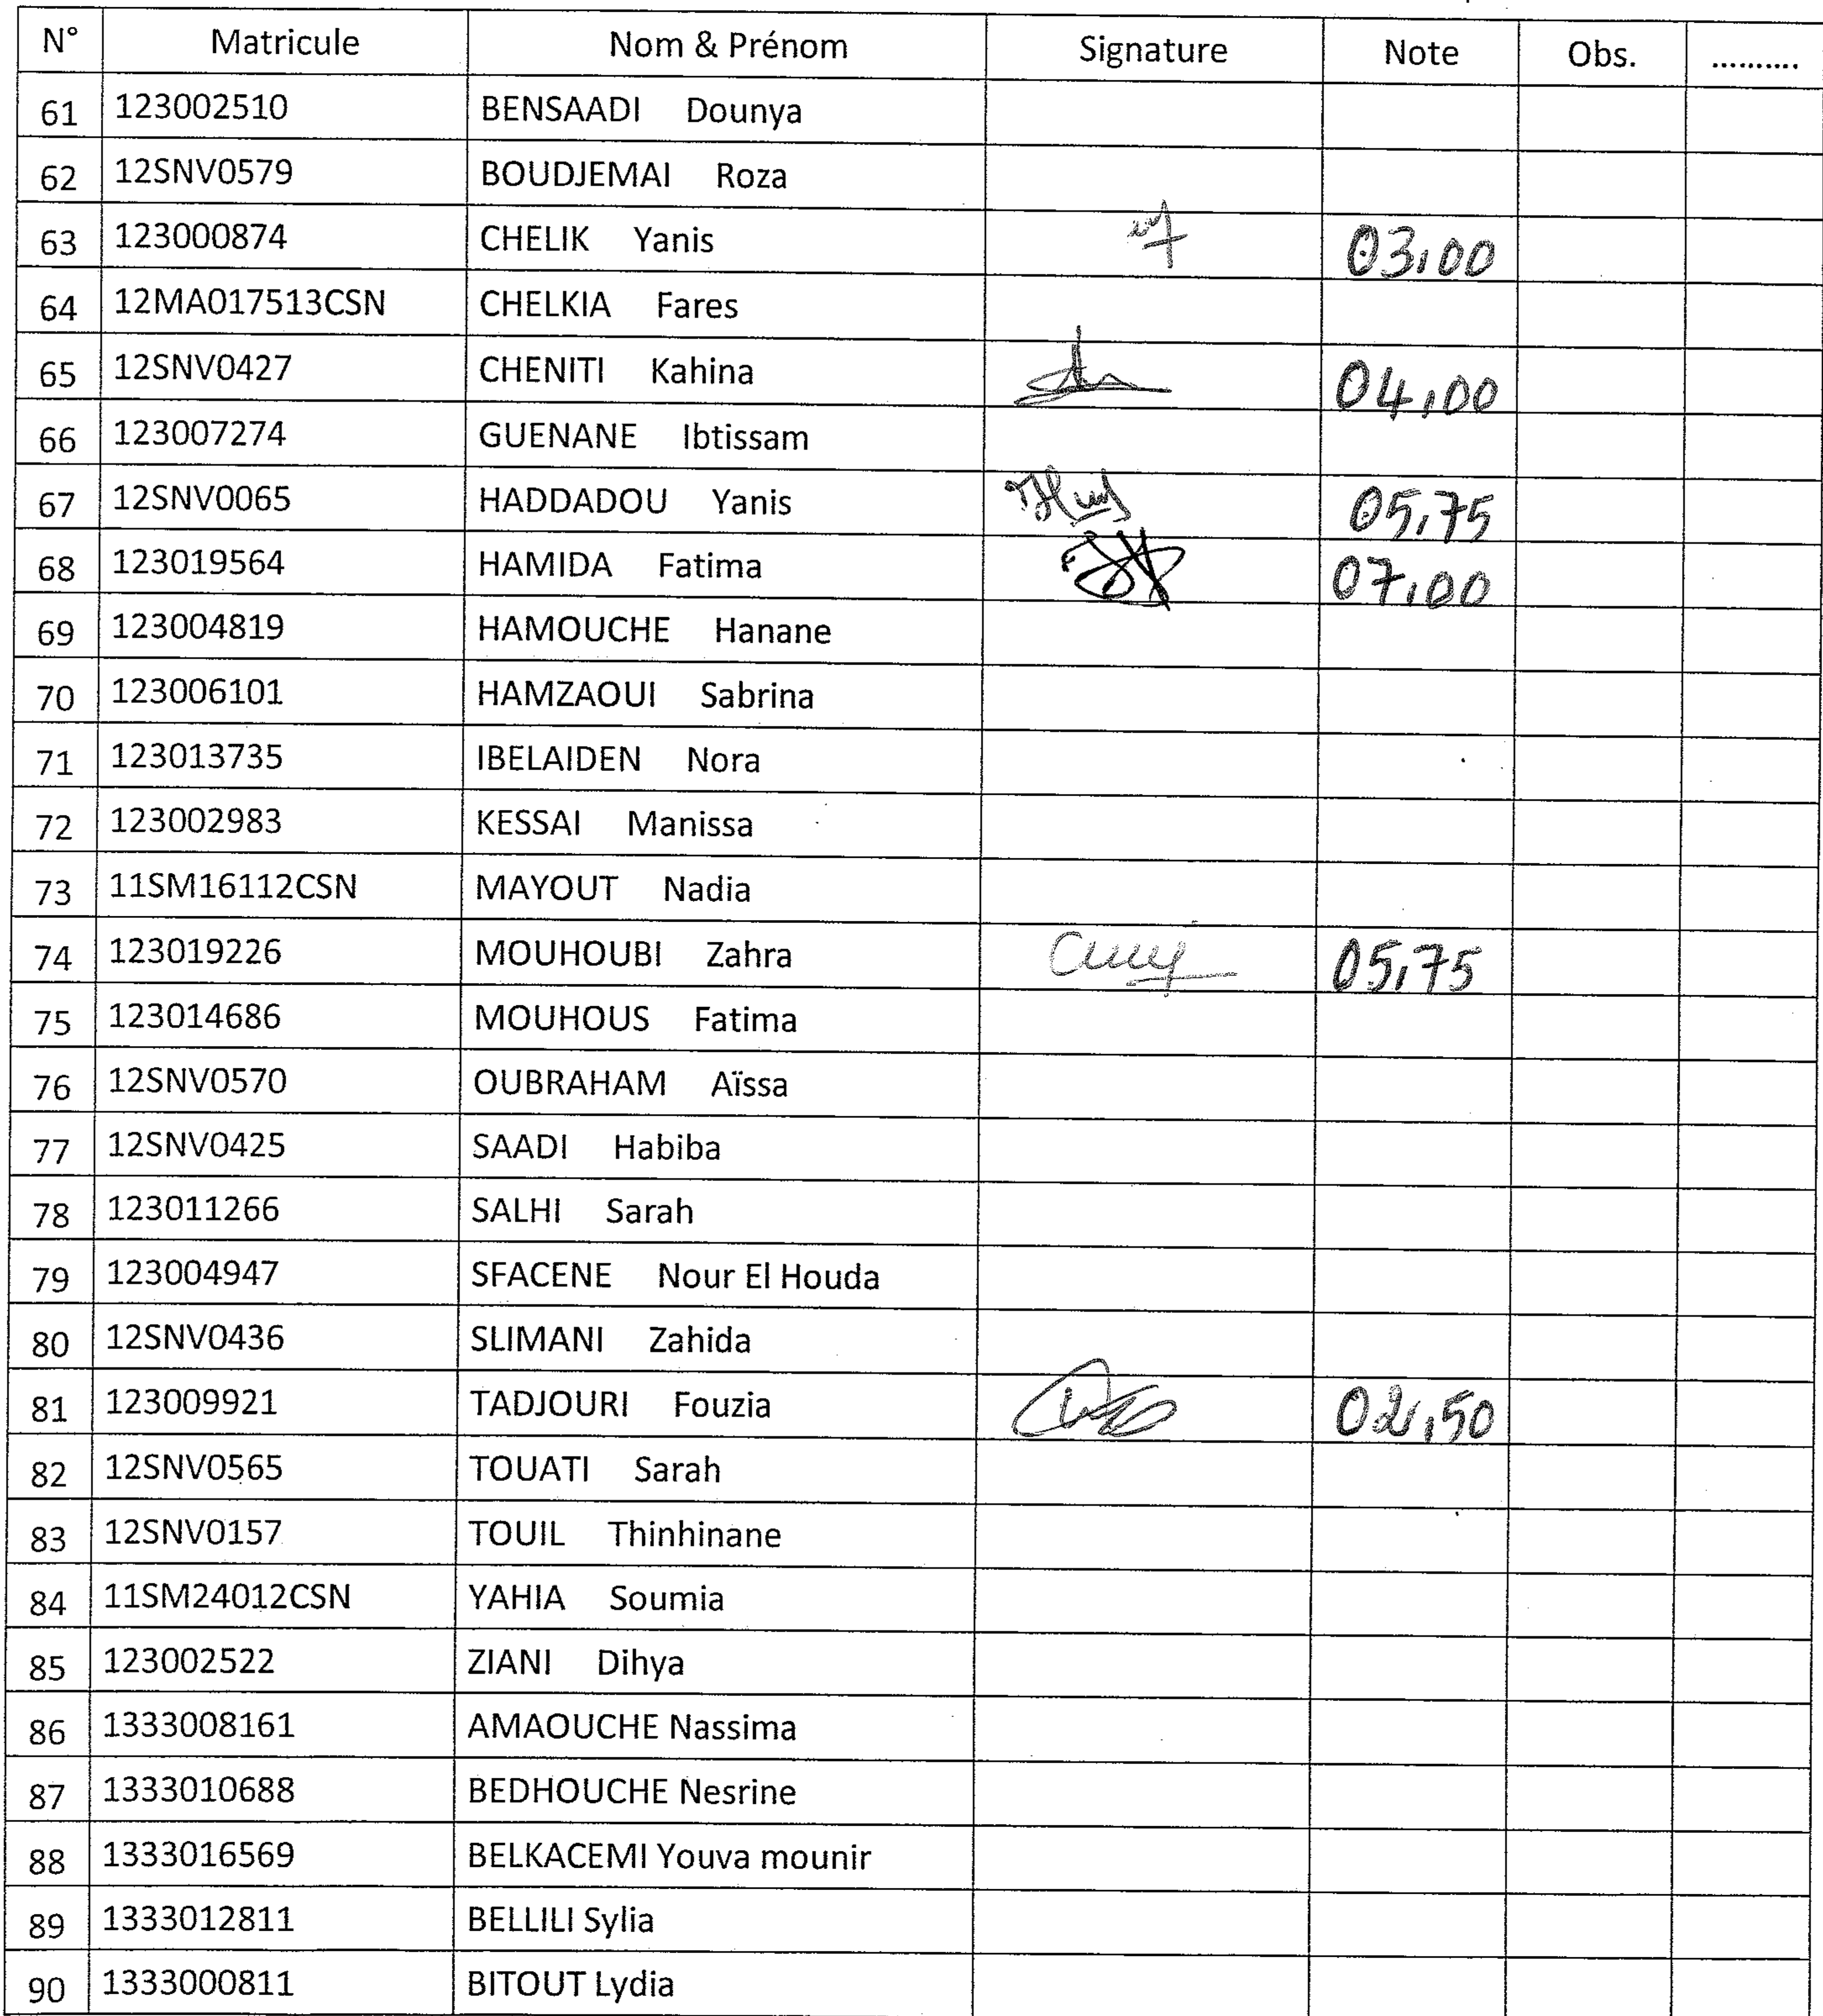 N° Matricule Nom & Prénom Signature Note Obs. ..........
61 123002510 BENSAADI Dounya
62 12SNV0579 BOUDJEMAI Roza
63 123000874 CHELIK Yanis 03,00
64 12MA017513CSN CHELKIA Fares
65 12SNV0427 CHENITI Kahina 04,00
66 123007274 GUENANE Ibtissam
67 12SNV0065 HADDADOU Yanis 05,75
68 123019564 HAMIDA Fatima 07,00
69 123004819 HAMOUCHE Hanane
70 123006101 HAMZAOUI Sabrina
71 123013735 IBELAIDEN Nora
72 123002983 KESSAI Manissa
73 11SM16112CSN MAYOUT Nadia
74 123019226 MOUHOUBI Zahra 05,75
75 123014686 MOUHOUS Fatima
76 12SNV0570 OUBRAHAM Aïssa
77 12SNV0425 SAADI Habiba
78 123011266 SALHI Sarah
79 123004947 SFACENE Nour El Houda
80 12SNV0436 SLIMANI Zahida
81 123009921 TADJOURI Fouzia 02,50
82 12SNV0565 TOUATI Sarah
83 12SNV0157 TOUIL Thinhinane
84 11SM24012CSN YAHIA Soumia
85 123002522 ZIANI Dihya
86 1333008161 AMAOUCHE Nassima
87 1333010688 BEDHOUCHE Nesrine
88 1333016569 BELKACEMI Youva mounir
89 1333012811 BELLILI Sylia
90 1333000811 BITOUT Lydia